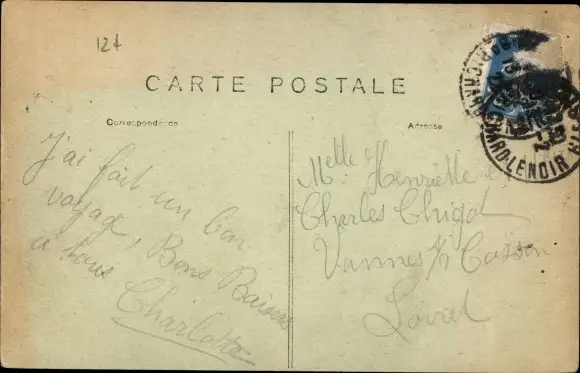 127
CARTE POSTALE
Correspondance
Adresse
J'ai fait un bon
voyage, Bons Baisers
a tous
Charlotte
Melle Henriette et
Charles Chigot
Vannes s/ Cosson
Loiret
RICHARD-LENOIR